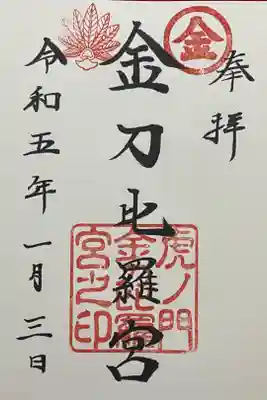 奉拝
金
金刀比羅宮
虎ノ門
金比羅
宮之印
令和五年一月三日